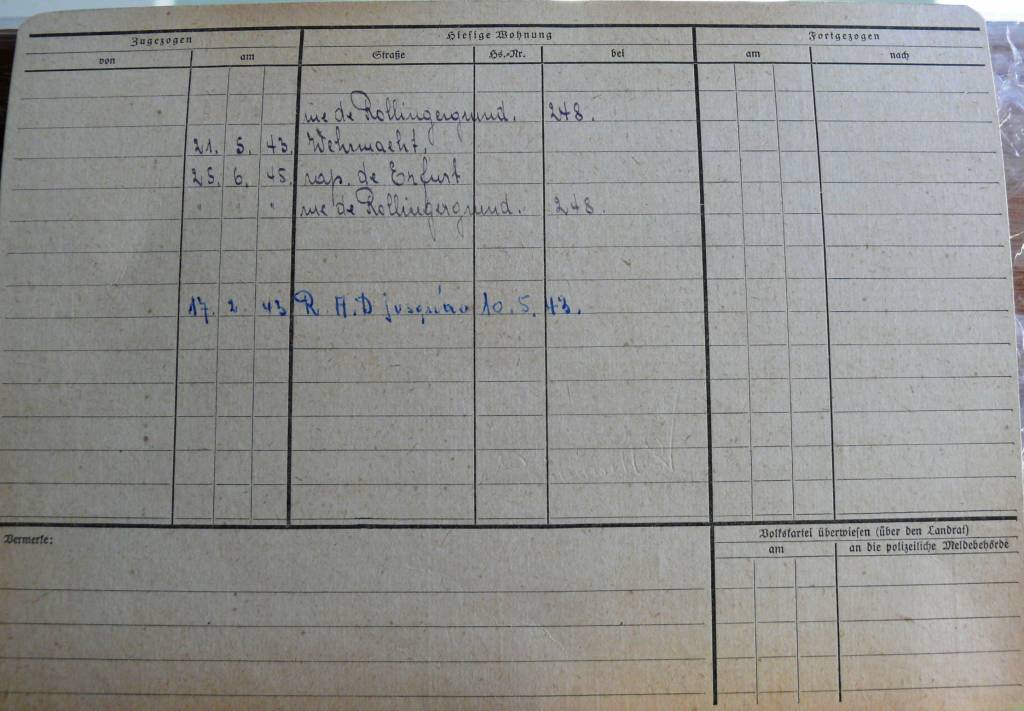 Zugezogen Hiesige Wohnung Fortgezogen
von am Straße Hs.-Nr. bei am nach
rue de Rollingergrund. 248.
21. 5. 43. Wehrmacht.
25. 6. 45. rap. de Erfurt
" " " rue de Rollingergrund. 248.
17. 2. 43 R A.D jusqu'au 10. 5. 43.
Vermerke:
Volkskartei überwiesen (über den Landrat)
am an die polizeiliche Meldebehörde